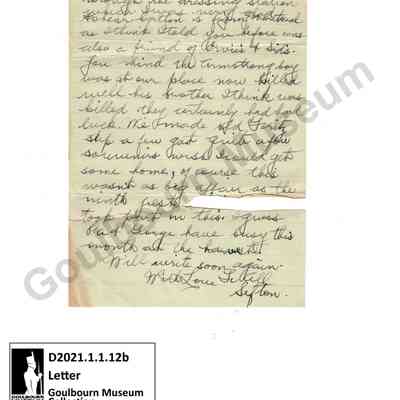 through the dressing station
which was very
as I think I told you before was
also a friend of Orvis's & Sid's.
You mind the Armstrong boy
was at our place now killed
well his brother I think was
killed they certainly had hard
luck. We made old Fritz
skip a few got quite a few
souvenirs wish I could get
some home, of course this
wasn't as big affair as the
ninth just
took part in this. I guess
George have busy this
month at the harvest.
Will write soon again.
With Love
Sefton.
Goulbourn Museum
D2021.1.1.12b
Letter
Goulbourn Museum
Collection
GOULBOURN